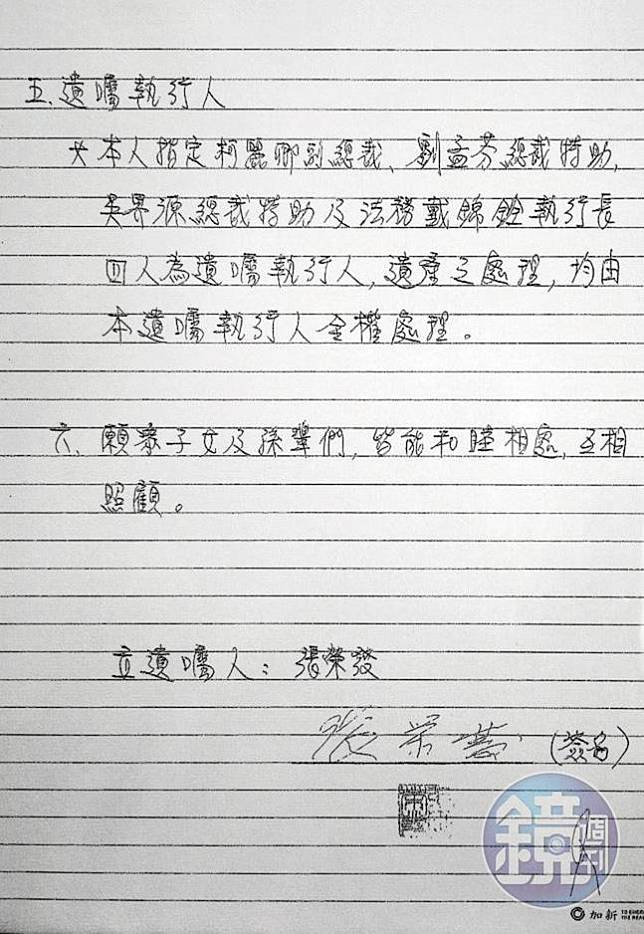 五.遺囑執行人
本人指定柯麗卿副總裁、劉孟芬總裁特助、
吳界源總裁特助及法務戴錦銓執行長
四人為遺囑執行人,遺產之處理,均由
本遺囑執行人全權處理。
六、願衆子女及孫輩們,皆能和睦相處、互相
照顧。
立遺囑人:張榮發
張榮發(簽名)
鏡週刊
加新